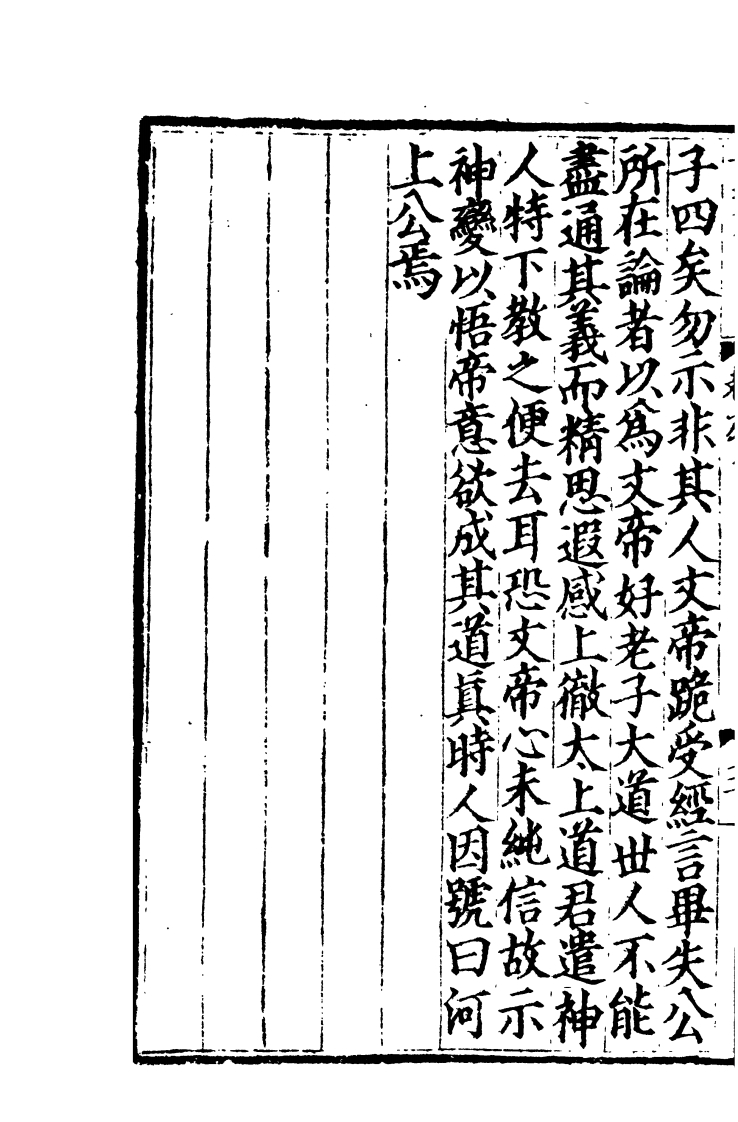 子四矣勿示非其人文帝跪受經言畢失公
所在論者以爲文帝好老子大道世人不能
盡通其義而精思遐感上徹太上道君遣神
人特下教之便去耳恐文帝心未純信故示
神變以悟帝意欲成其道眞時人因號曰河
上公焉